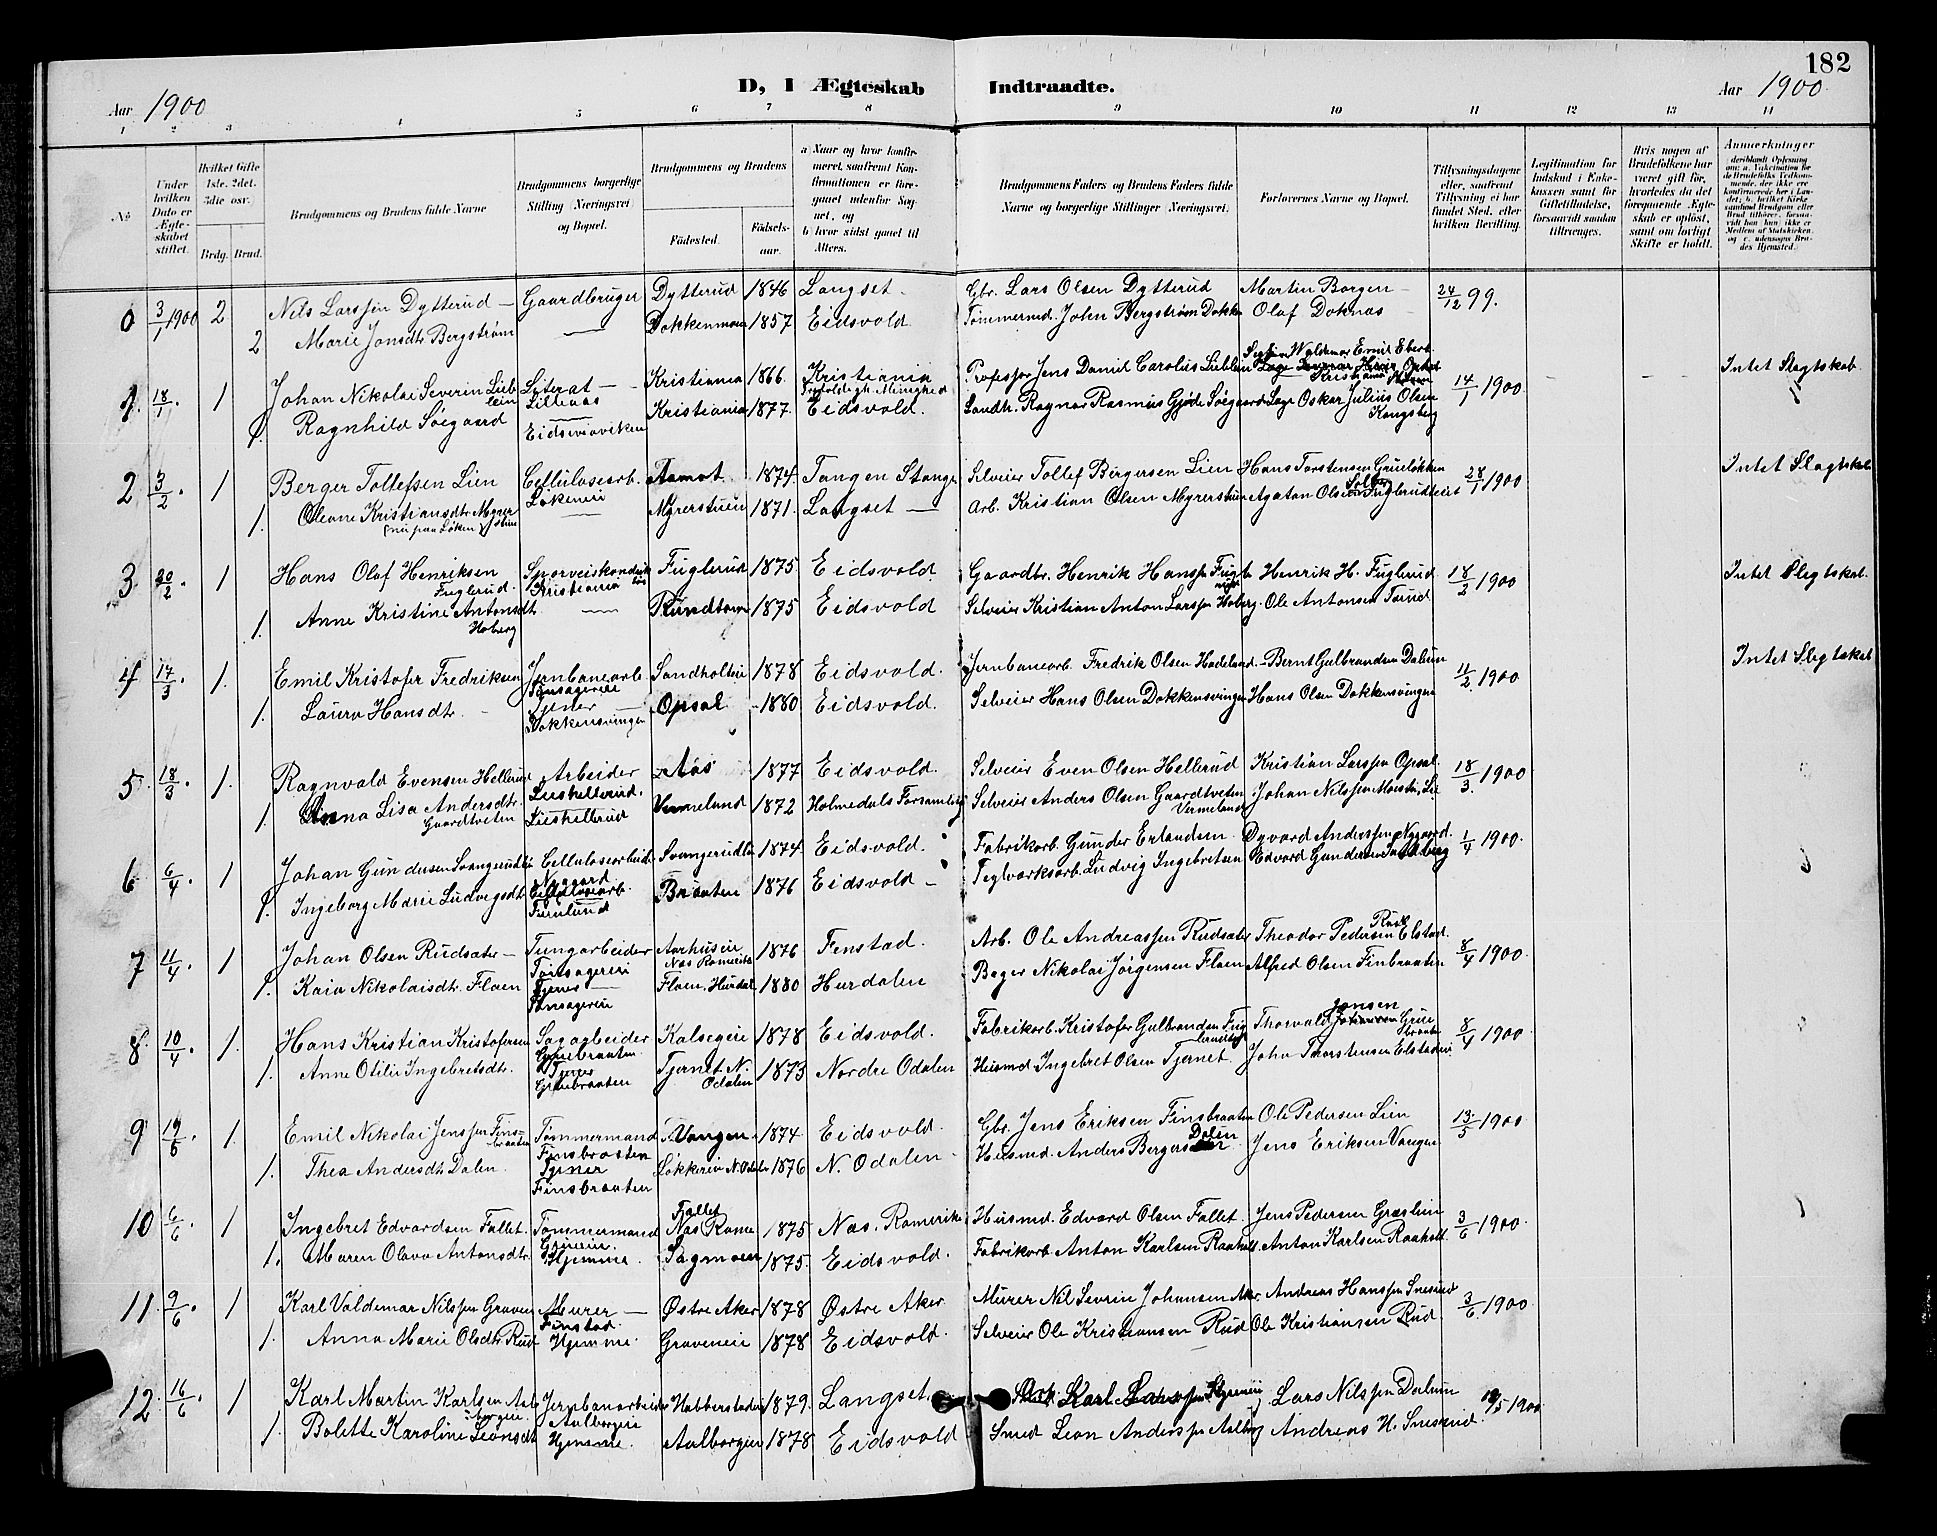 182
D, I Ægteskab Indtraadte.
Aar 1900
Aar 1900.
1 2 3 4 5 6 7 8 9 10 11 12 13 14
No
Under hvilken Dato er Ægteskabet stiftet.
Hvilket Gifte 1ste. 2det. 3die osv.
Brdg. Brud.
Brudgommens og Brudens fulde Navne
Brudgommens borgerlige Stilling (Næringsvei) og Bopæl.
Brudgommens og Brudens
Födested.
Födsels-aar.
a) Naar og hvor konfirmeret, saafremt Konfirmationen er foregaaet udenfor Sognet, og
b) hvor sidst gaaet til Alters.
Brudgommens Faders og Brudens Faders fulde Navne og borgerlige Stillinger (Næringsvei)
Forlovernes Navne og Bopæl.
Tillysningsdagene eller, saafremt Tillysning ei har fundet Sted, efter hvilken Bevilling.
Legitimation for Indskud i Enkekassen samt for Giftetilladelse, forsaavidt saadan tiltrænges.
Hvis nogen af Brudefolkene har været gift før, hvorledes da det foregaaende Ægteskab er opløst, samt om lovligt Skifte er holdt.
Anmerkninger
0 3/1 1900 2 Nils Larssen Dytterud — Gaardbruger Dytterud 1846 Langset. Gbr. Lars Olsen Dytterud Martin Borgen — 24/12 99.
2 Marie Jonsdtr Bergstrøm — Dokkenmoen 1857 Eidsvold. Tømmermd. John Bergstrøm Dokken Olaf Doknas —
1. 18/1. 1 Johan Nikolai Severin Lieblein Literat — Lilleaas Kristiania 1866. Kristiania Professor Jens Daniel Carolus Lieblein Waldemar Emil Kristiania 14/1 1900 Intet Slagtskab.
1. Ragnhild Søegaard Eidsvoviken Kristiania 1877. Eidsvold. Landh. Ragnar Rasmus Gjøde Søegaard Oskar Julius Olsen Kongsberg
2 3/2. 1 Berger Tollefsen Lien Cellulosearb. Løkeneie Aamot 1874. Tangen Stange Selveier Tollef Bergersen Lien Hans Torstensen Grueløkken 28/1 1900 Intet Slagtskab
1. Oleane Kristiansdtr. Myrerstuen (nu paa Løken) Myrerstuen 1871. Langset — Arb. Kristian Olsen Myrerstuen Agaton Olsen Fuglerudeiet
3. 20/2 1 Hans Olaf Henriksen Fuglerud. Sporveiskonduktør Kristiania Fuglerud 1875 Eidsvold. Gaardbr. Henrik Hansen Henrik H. Fuglerud 18/2 1900 Intet Slegtskab.
1. Anne Kristine Antonsdtr. Hoberg — Rundtom 1875 Eidsvold Selveier Kristian Anton Larssen Hoberg. Ole Antonsen Torud
4 17/3. 1. Emil Kristofer Fredriksen Jernbanearb. Tønsagereie Sandholteie 1878 Eidsvold. Jernbanearb. Fredrik Olsen Hadeland. — Bernt Gulbrandsen Dalum 11/2. 1900 Intet Slegtskab
1. Laura Hansdtr. — Tjener — Dokkensvingen Opsal 1880 Eidsvold. Selveier Hans Olsen Dokkensvingen Hans Olsen Dokkensvingen
5. 18/3 1. Ragnvald Evensen Hellerud Arbeider Lieshellerud. Aas 1877 Eidsvold. Selveier Even Olsen Hellerud Kristian Larssen Opsal. 18/3. 1900
1. Anna Lisa Andersdtr. Gaardtveten Lieshellerud Vermeland 1872 Holmedals Forsamling Selveier Anders Olsen Gaardtveten Vermeland Johan Nilssen
6. 6/4. 1 Johan Gundersen Cellulosearbeid. Nygaard 1874. Eidsvold. Fabrikarb. Gunder Erlandsen Dyvard Anderssen Nygaard. 1/4 1900.
1. Ingeborg Marie Ludvigsdtr Cellulosearb. Furulund Braaten 1876 Eidsvold — Teglværksarb. Ludvig Ingebretsen Edvard Gundersen
7 11/4 1 Johan Olsen Rudsæter — Tungarbeider Tønsagereie Aarhuseie Nas Romerike 1876 Fenstad. Arb. Ole Andreassen Rudsæter Theodor Pedersen Elstad. 8/4 1900.
1. Kaia Nikolaisdtr. Flaen Tjener — Tønsagereie Flaen. Hurdal 1880 Hurdalen Bager Nikolai Jörgensen Flaen Alfred Olsen Finbraaten
8. 10/4. 1. Hans Kristian Kristofersen Sagarbeider Gruebraaten. Kalsegeie 1878 Eidsvold. Fabrikarb. Kristofer Gulbrandsen Thorvald Jansen Gruebraaten 8/4 1900
1. Anne Otilie Ingebretsdtr. Tjener Gruebraaten Tjernet N. Odalen 1873 Nordre Odalen Husmd Ingebret Olsen Tjernet. John Thorstensen Elstadeie
9 19/5. 1. Emil Nikolai Jenssen Finsbraaten Tømmermand Finsbraaten Vangen 1874 Eidsvold. Gbr. Jens Eriksen Finsbraaten Ole Pedersen Lien 13/5 1900
1. Thea Andersdtr Dalen. Tjener Finsbraaten Løkkereie N. Odalen 1876 N. Odalen — Husmd. Anders Bergersen Dalen Jens Eriksen Vangen
10 6/6. 1 Ingebret Edvardsen Fallet. Tømmermand Fallet Nas Rome 1875 Nas. Romerike Husmd. Edvard Olsen Fallet. Jens Pedersen Græslien 3/6 1900.
1. Maren Olava Antonsdtr. Hjemme. Sagmoen 1875. Eidsvold. Fabrikarb. Anton Karlsen Raaholt. Anton Karlsen Raaholt.
11. 9/6. 1 Karl Valdemar Nilssen Graven Murer — Finstad. Østre Aker 1878 Østre Aker Murer Nil Sevrin Johansen Aker. Andreas Hanssen Snesrud 3/6. 1900.
1. Anna Marie Olsdtr. Rud Hjemme Graveneie 1878 Eidsvold. Selveier Ole Kristiansen Rud Ole Kristiansen Rud.
12. 16/6. 1 Karl Martin Karlsen Jernbanarbeider Aalborgeie Habberstadeie 1879. Langset. Karl Larssen Lars Nilssen Dalum 1900
1. Bolette Karoline Leonsdt Hjemme. Aalborgeie 1878 Eidsvold Smed Leon Anderssen Aalborg Andreas H. Snesrud.